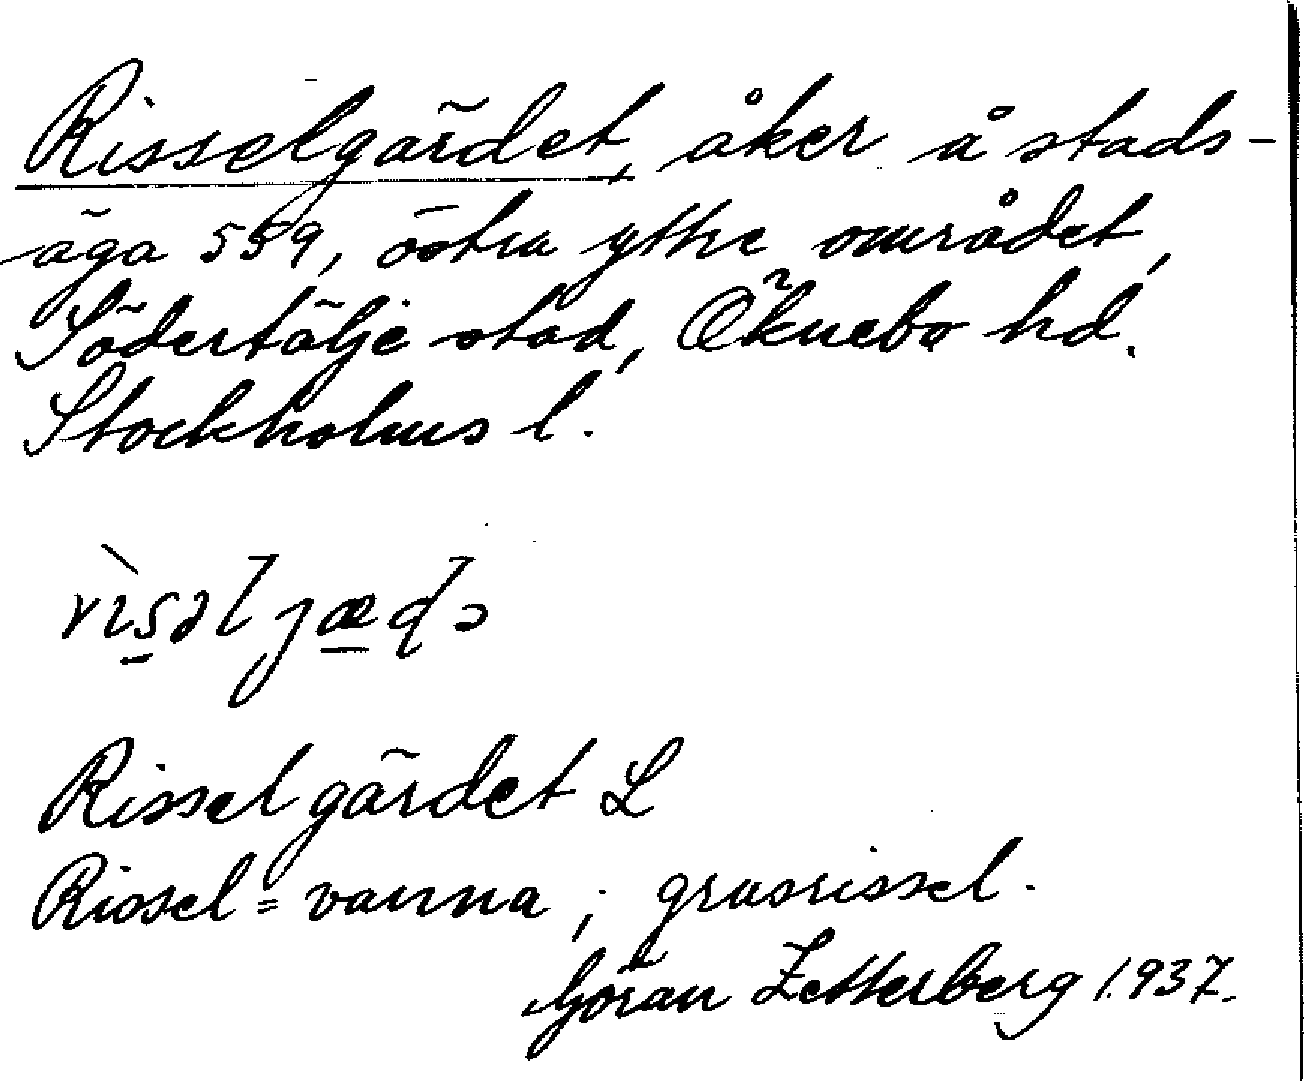 Risselgärdet, åker å stads-
äga 559, östra yttre området,
Södertälje stad, Öknebo hd.
Stockholms l.
rìsəl jæḍə
Risselgärdet L
Rissel = vanna ; grusrissel.
Göran Zetterberg 1937.